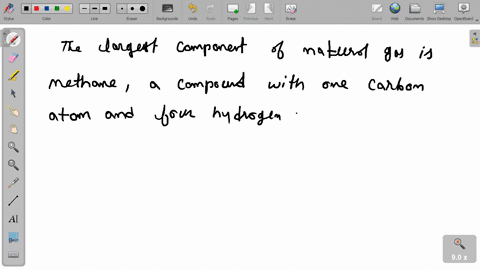 Board 1
Backgrounds
Undo
Redo
Pages
Previous
Next
Erase
Board
Web
Documents
Show Desktop
OpenBoard
The largest component of natural gas is
methane, a compound with one carbon
atom and four hydrogen .
9.0 x